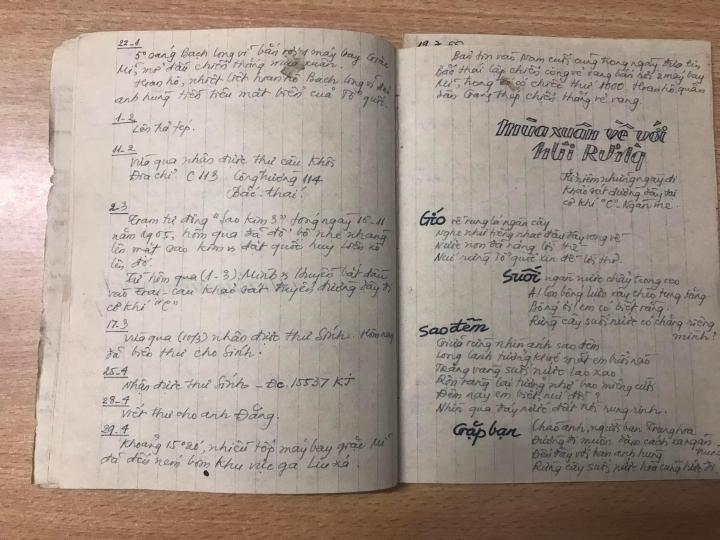 22-1
5h sáng Bạch Long vĩ bắn rơi 1 máy bay giặc
Mĩ, mở đầu chiến thắng mùa xuân.
Hoan hô, nhiệt liệt hoan hô Bạch Long vĩ đảo
anh hùng tiền tiêu mắt biển của Tổ quốc.
1-2
Lên hà tép.
11-2
Vừa qua nhận được thư cậu Khôi
Địa chỉ C 113 Công trường 114
Bắc-thái.
2-3
Trạm tự động "Sao kim 3" phóng ngày 16-11
năm 1965, hôm qua đã đổ bộ nhẹ nhàng
lên mặt sao kim và đặt quốc huy Liên xô
lên đó.
Từ hôm qua (1-3), Minh và Thuyên bắt đầu
vào Trại-cau khảo sát tuyến đường dây đi
cơ khí "C"
17-3
Vừa qua (10/3) nhận được thư Sinh. Hôm nay
đã biên thư cho Sinh.
25-4
Nhận được thư Sinh - Đc. 15537 KJ
28-4
Viết thư cho anh Đẳng.
29-4
Khoảng 15h20, nhiều tốp máy bay giặc Mĩ
đã đến ném bom khu vực ga Lưu xá.
Bản tin vào Nam cuối cùng trong ngày đưa tin
bắc thái lập chiến công vẻ vang bắn rơi 2 máy bay
Mĩ, trong đó có chiếc thứ 1000. Hoan hô quân
dân ta chiến thắng vẻ vang.
Mùa xuân về với
Núi Rừng
Kỷ niệm những ngày đi
khảo sát đường dây tại
cơ khí "C" - Ngàn me.
Gió về rung lá ngàn cây
Nghe như tiếng nhạc đâu đây vọng về
Nước non đã nặng lời thề
Núi rừng Tổ quốc xin đề lời thơ.
Suối ngàn nước chảy trong veo
Ai lên bỗng lưng chèo tung tăng
Bống ơi em có biết rằng
Rừng cây suối nước có chăng riêng
mình!
Sao đêm
Giữa rừng nhìn ánh sao đêm
Long lanh tưởng mắt em hôm nào
Trăng vàng suối nước lao xao
Rộn ràng lại tưởng nhớ bao miệng cười
Đêm nay em biết, em ơi?
Nhìn qua đáy nước đất trời rung rinh.
Gặp bạn Chào anh, người bạn Trung hoa
Đường đi muôn dặm cách xa ngàn
trùng
Đến đây với bạn anh hùng
Rừng cây suối nước hoà cùng